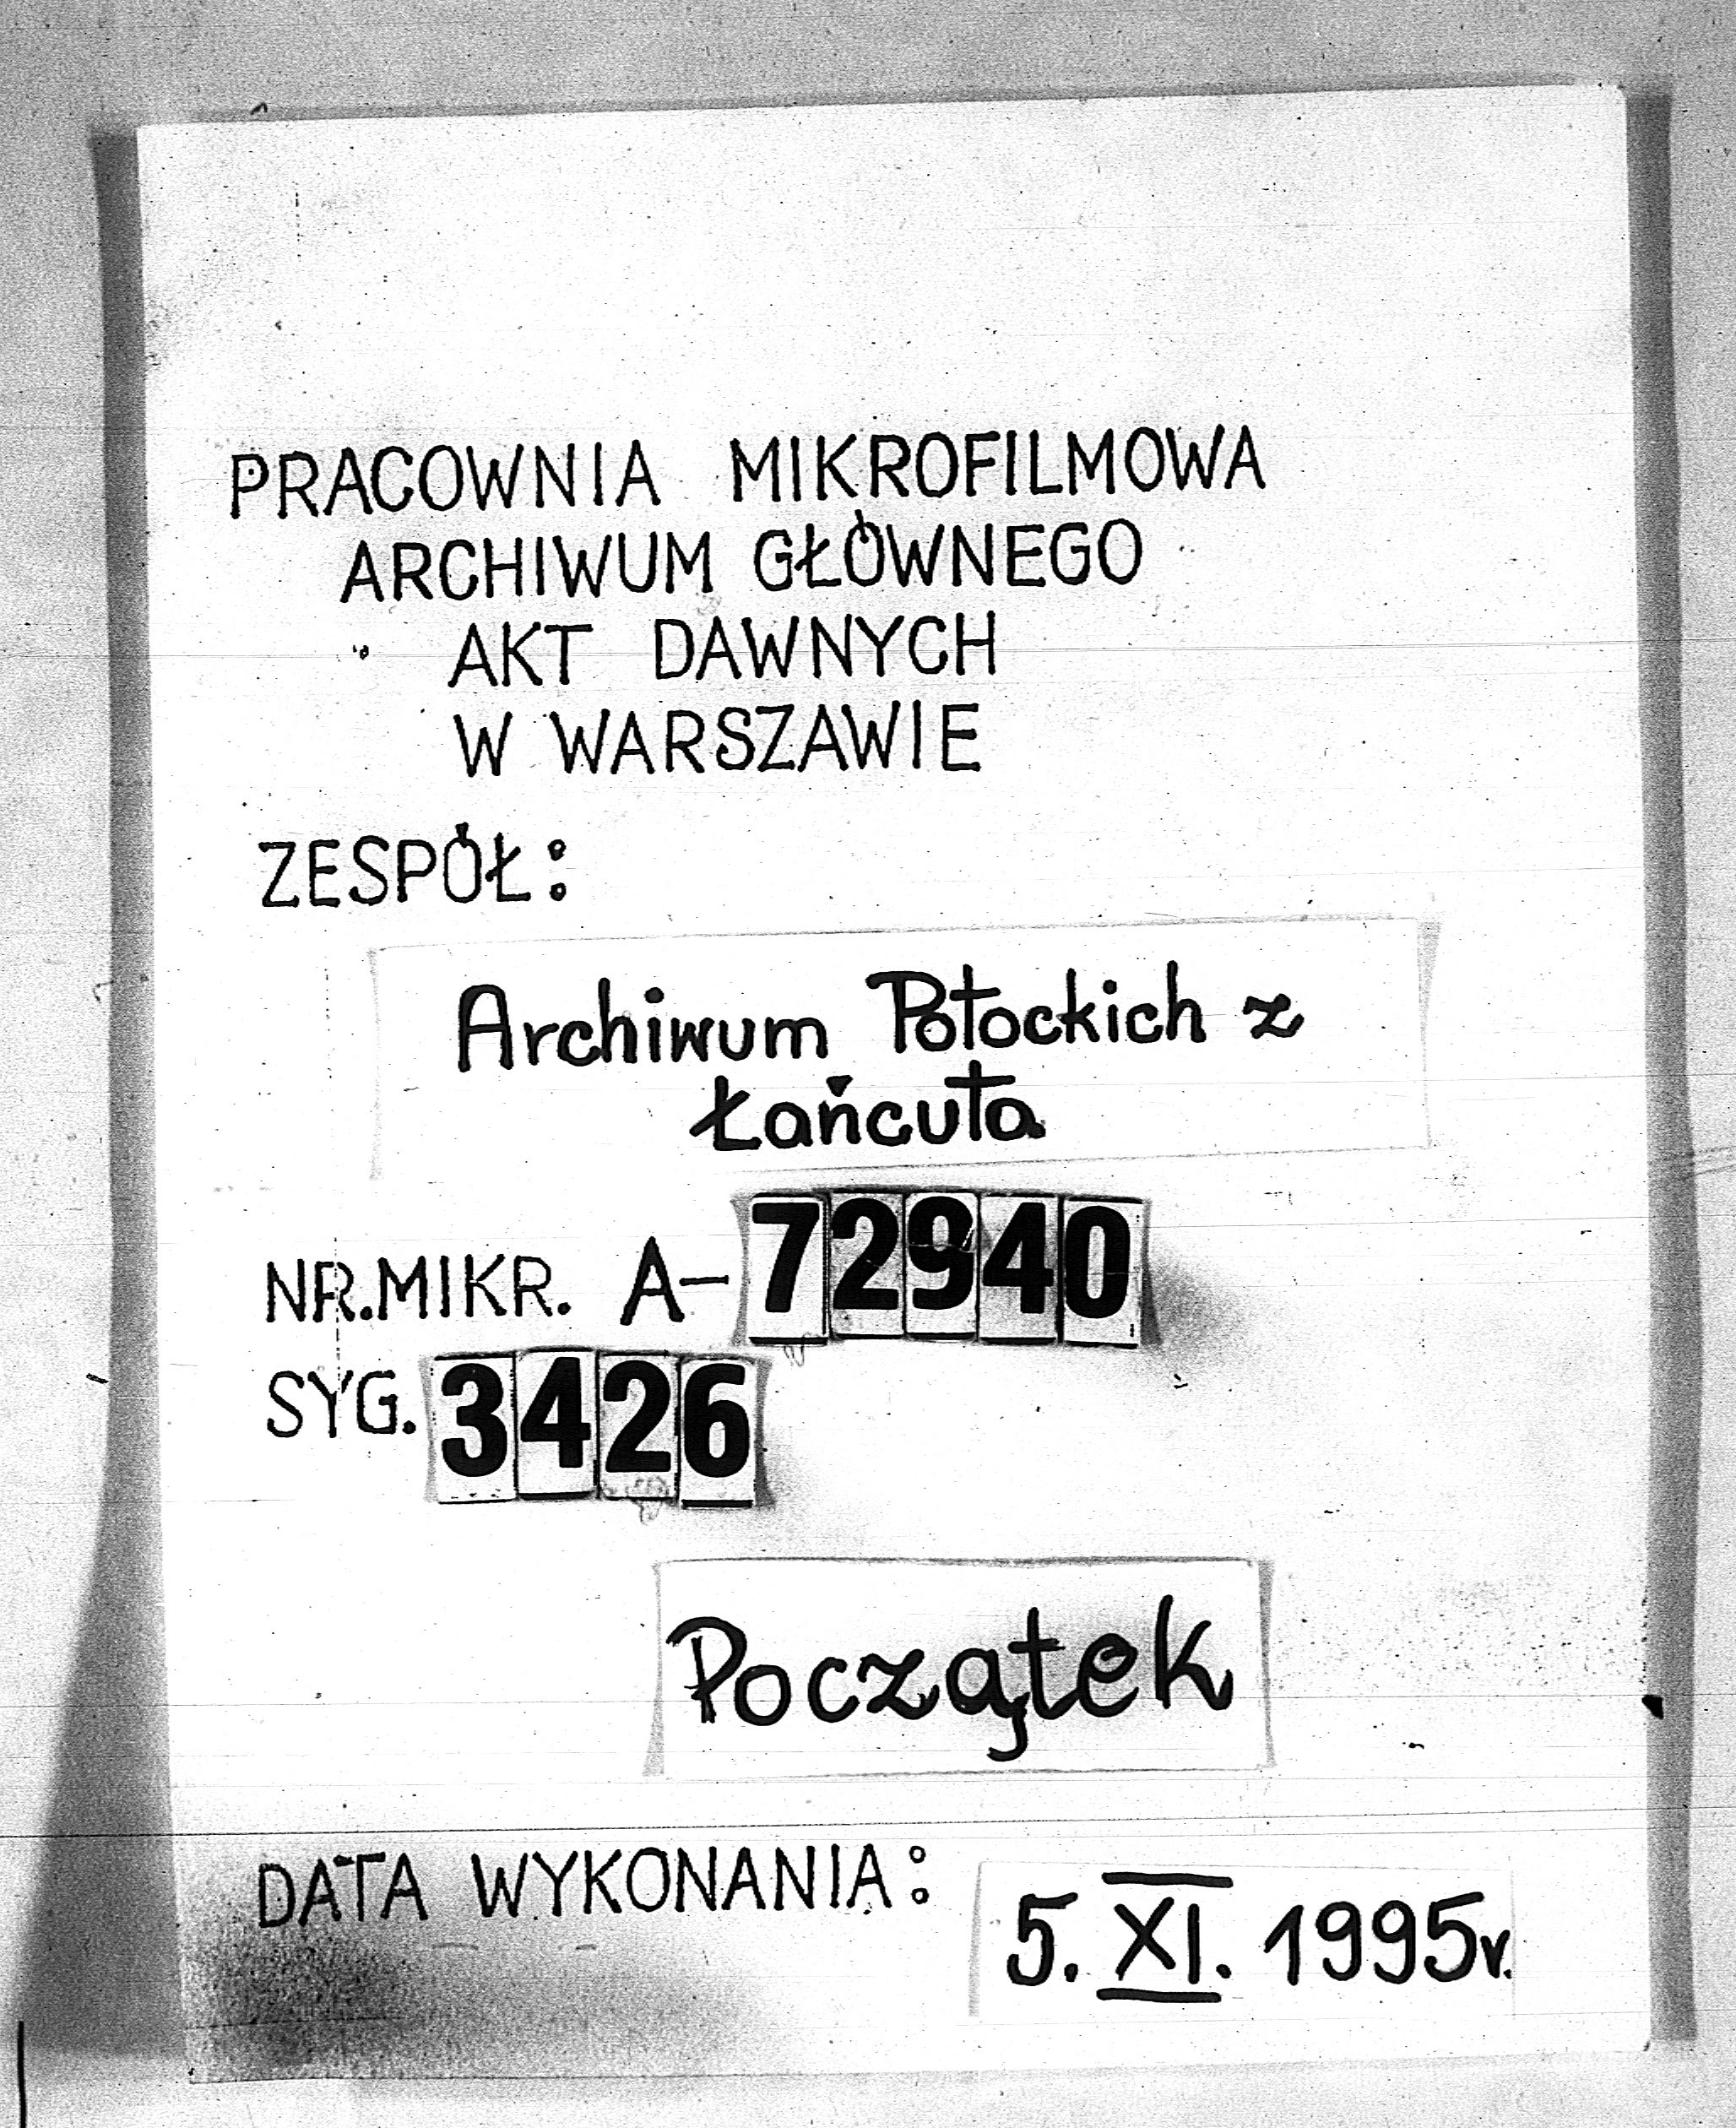 PRACOWNIA MIKROFILMOWA
ARCHIWUM GŁÓWNEGO
AKT DAWNYCH
W WARSZAWIE
ZESPÓŁ:
Archiwum Potockich z
Łańcuta
NR.MIKR. A-72940
SYG. 3426
Początek
DATA WYKONANIA: 5.XI.1995r.